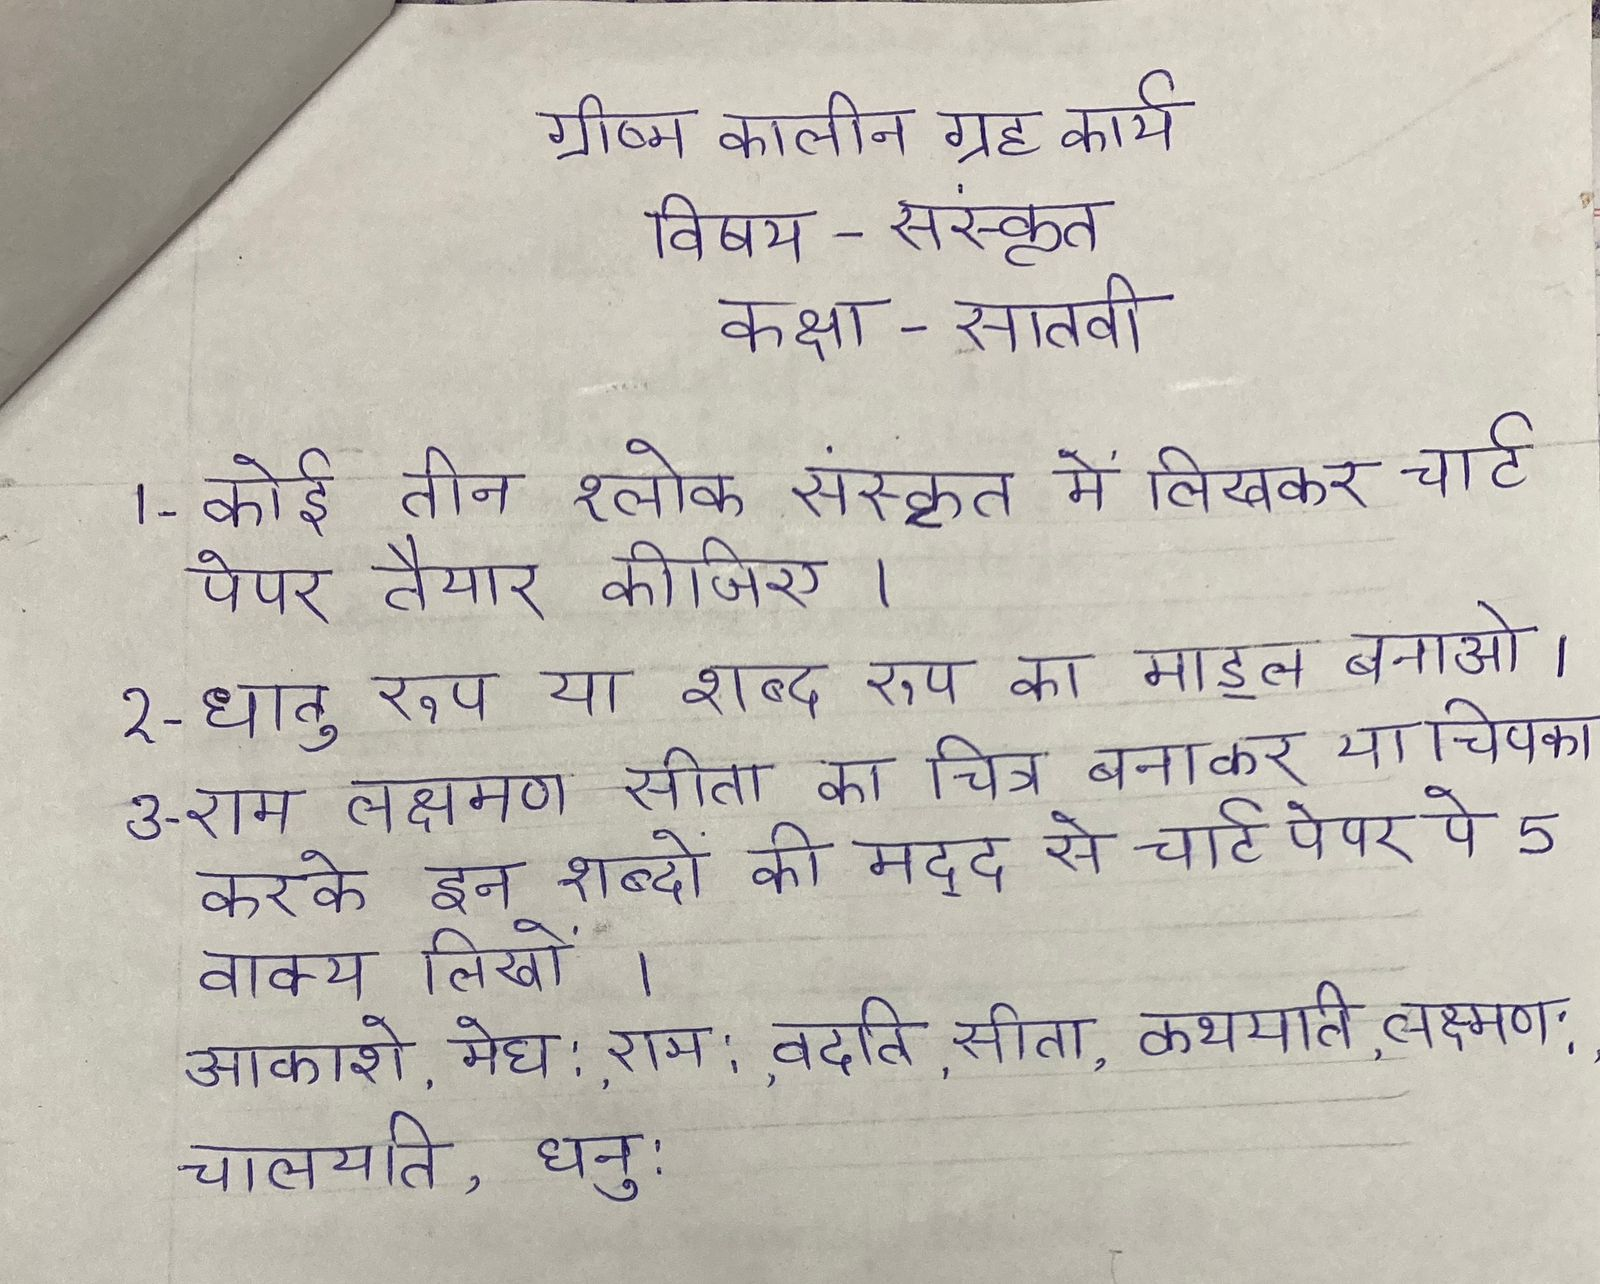 ग्रीष्म कालीन ग्रह कार्य
विषय - संस्कृत
कक्षा - सातवी
1- कोई तीन श्लोक संस्कृत में लिखकर चार्ट
पेपर तैयार कीजिए ।
2- धातु रूप या शब्द रूप का माड्ल बनाओ ।
3- राम लक्षमण सीता का चित्र बनाकर या चिपका
करके इन शब्दों की मद्द से चार्ट पेपर पे 5
वाक्य लिखों ।
आकाशे, मेघ:, राम:, वदति, सीता, कथयति, लक्ष्मण:,
चालयति, धनु: